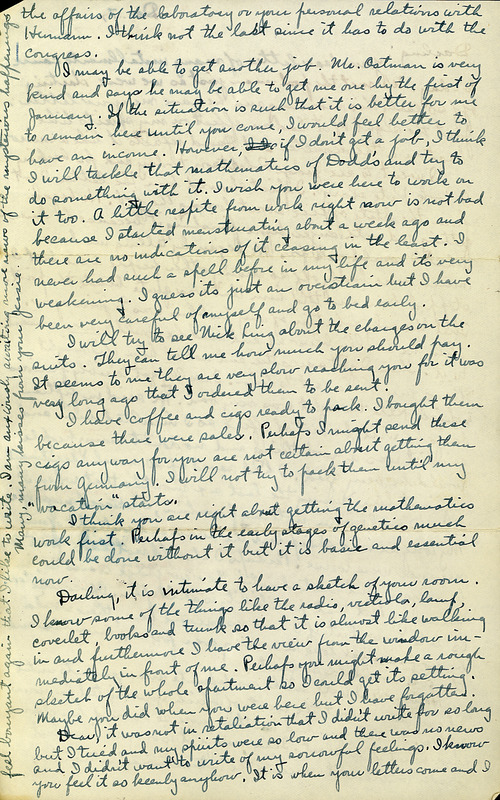 the affairs of the laboratory or your personal relations with
Hermann. I think not the last since it has to do with the
congress.
I may be able to get another job. Mr. Ostman is very
kind and says he may be able to get me one by the first of
January. If the situation is such that it is better for me
to remain here until you come, I would feel better to
have an income. However, if I don't get a job, I think
I will tackle that mathematics of Dodd's and try to
do something with it. I wish you were here to work on
it too. A little respite from work right now is not bad
because I started menstruating about a week ago and
there are no indications of it ceasing in the least. I
never had such a spell before in my life and its very
weakening. I guess its just an overstrain but I have
been very careful of myself and go to bed early.
I will try to see Nick about the charges on the
suits. They can tell me how much you should pay.
It seems to me they are very slow reaching you for it was
very long ago that I ordered them to be sent.
I have coffee and cigs ready to pack. I bought them
because there were sales. Perhaps I might send these
cigs anyway for you are not certain about getting them
from Germany. I will not try to pack them until my
"vacation" starts.
I think you are right about getting the mathematics
work first. Perhaps in the early stages of genetics much
could be done without it but it is basic and essential
now.
Darling, it is intimate to have a sketch of your room.
I know some of the things like the radio, victrola, lamp,
coverlet, books and trunk so that it is almost like walking
in and furthermore I have the view from the window im-
mediately in front of me. Perhaps you might make a rough
sketch of the whole apartment so I could get its setting.
Maybe you did when you were here but I have forgotten.
Dear, it was not in retaliation that I didn't write for so long
but I tried and my spirits were so low and there was no news
and I didn't want to write of my sorrowful feelings. I know
you feel it as keenly anyhow. It is when your letters come and I
feel buoyant again that I like to write. I am anxiously awaiting more news of the mysterious happenings
Many, many kisses from your Jessie.